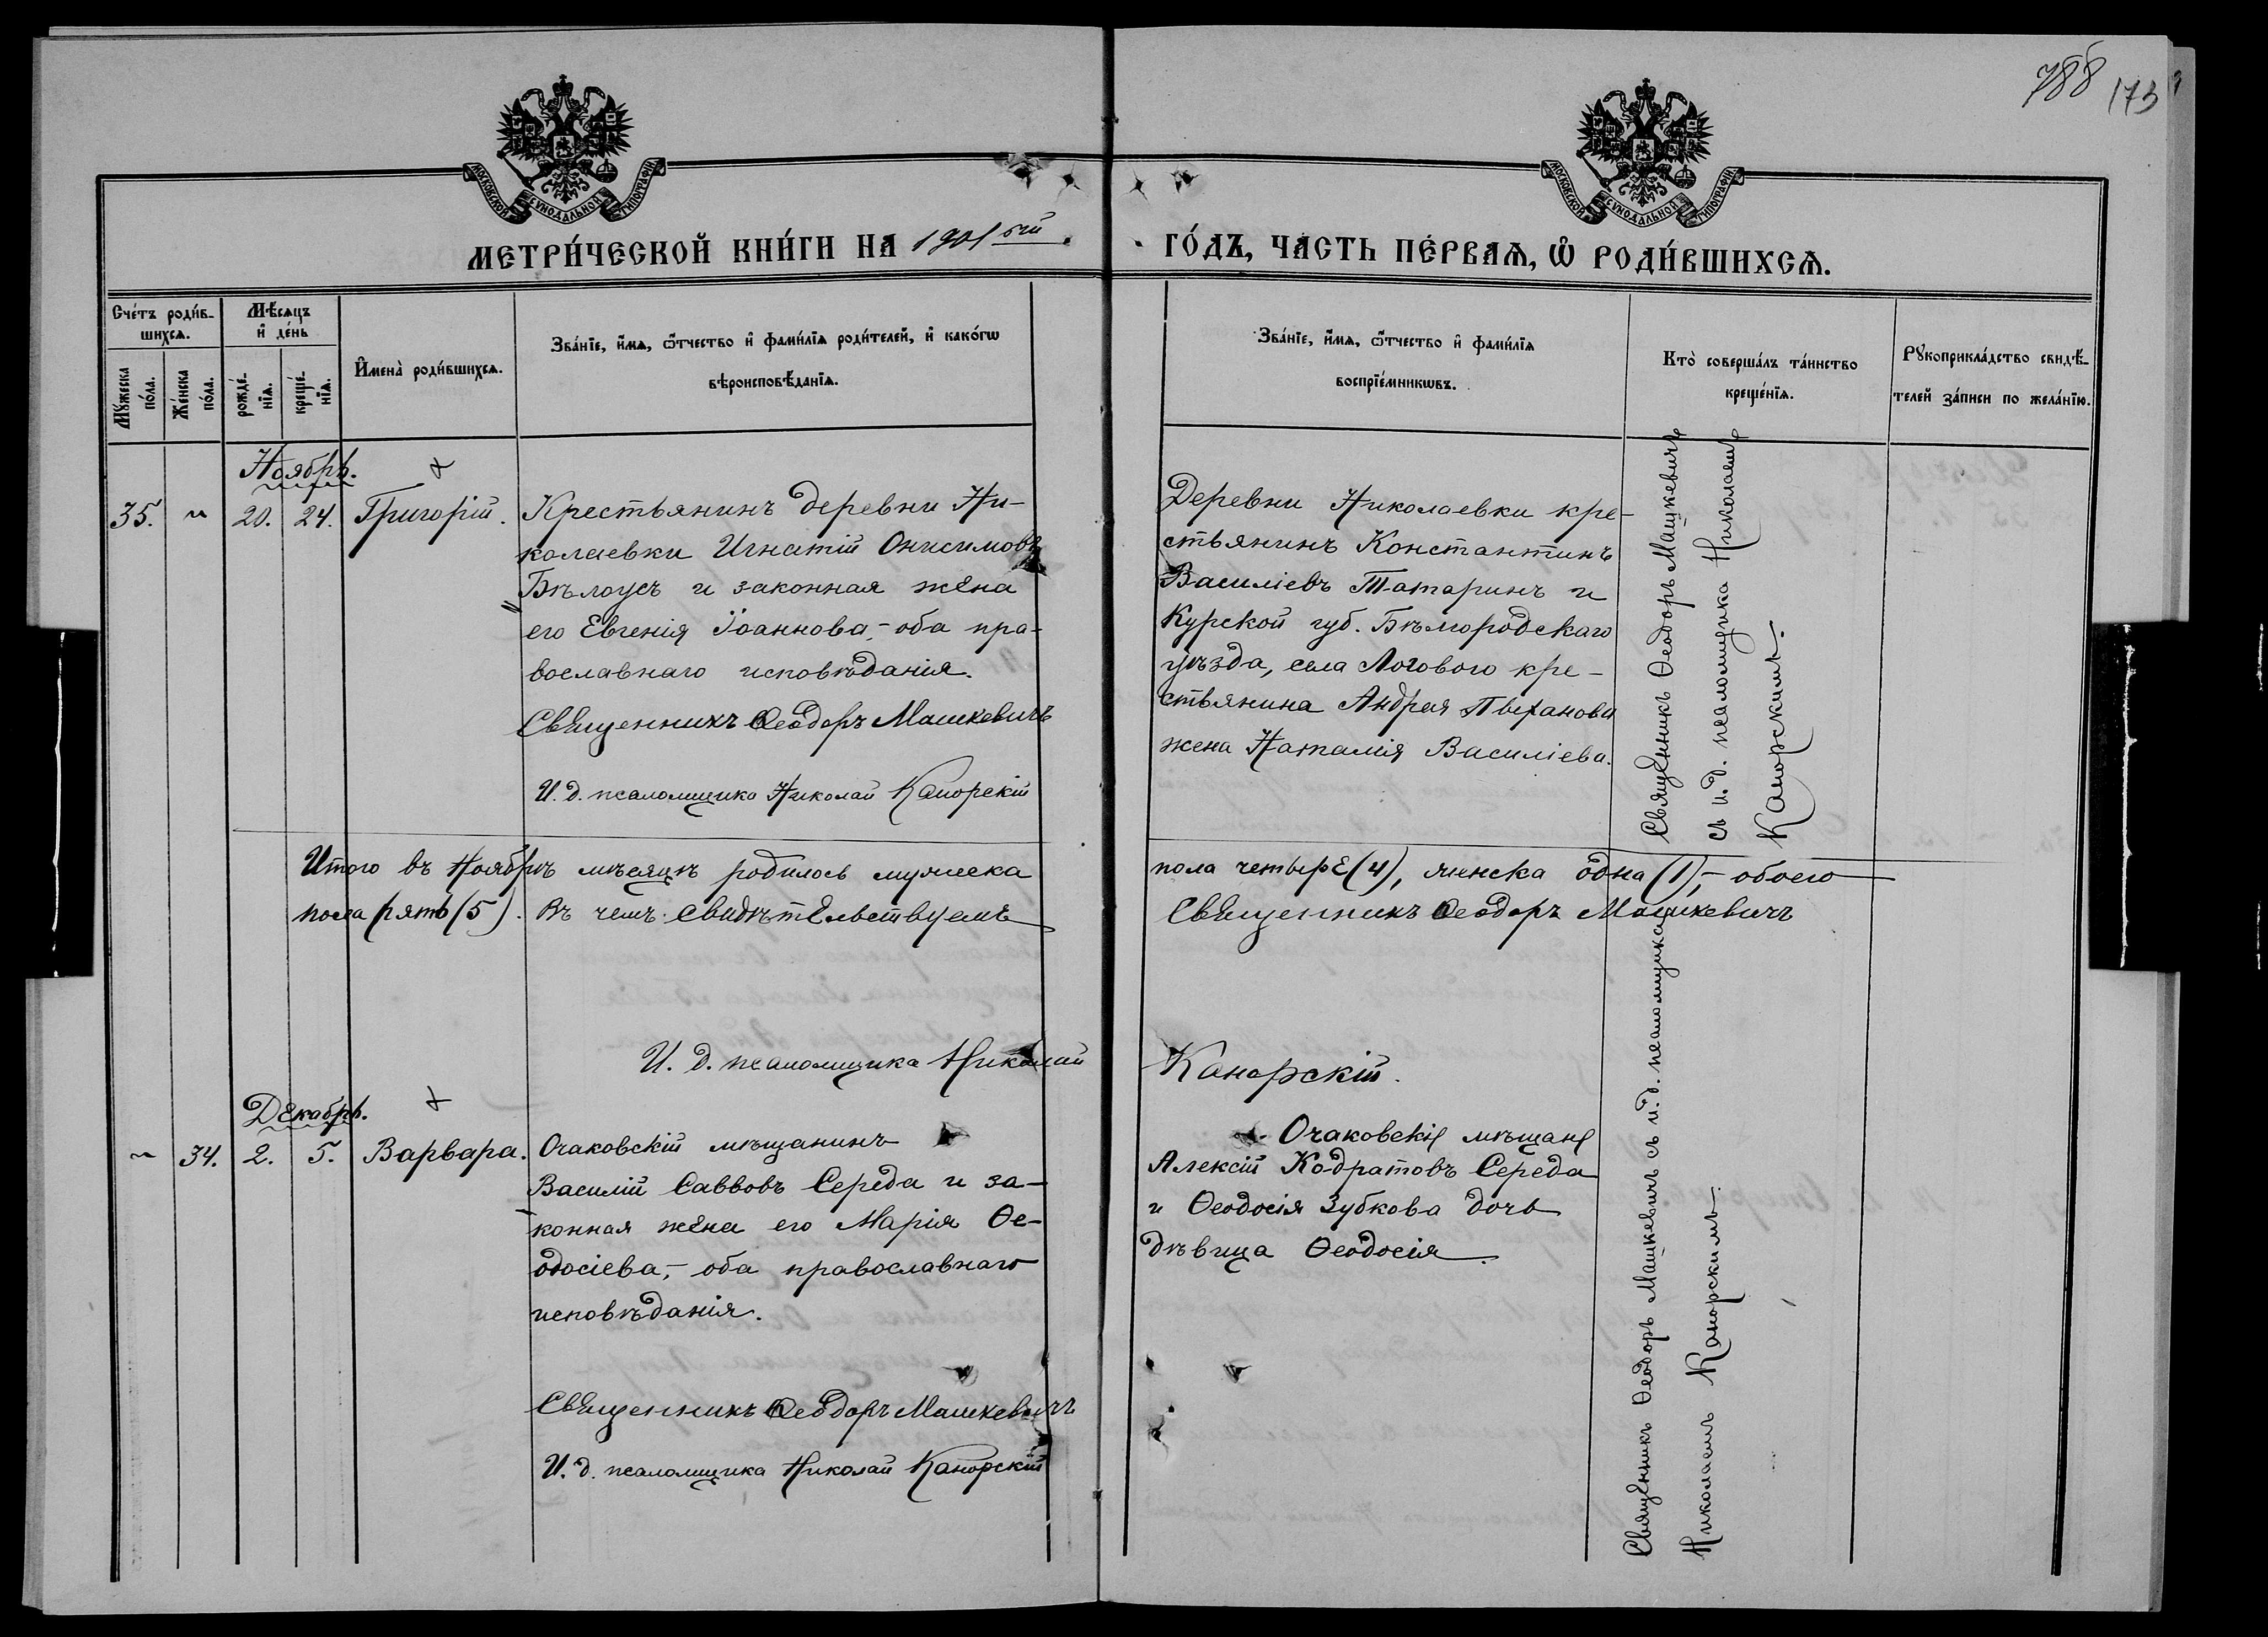 788 173
МОСКОВСКОЙ СѴНОДАЛЬНОЙ ТИПОГРАФІИ
МОСКОВСКОЙ СѴНОДАЛЬНОЙ ТИПОГРАФІИ
МЕТРИ́ЧЕСКОЙ КНИ́ГИ НА 1901ый
ГО́ДЪ, ЧА́СТЬ ПЕ́РВАѦ, Ѡ҆ РОДИ́ВШИХСѦ.
Сче́тъ роди́в-
шихсѧ.
Мꙋ́жеска по́ла.
Же́нска по́ла.
Мѣ́сѧцъ
и҆ де́нь
рожде́-
нїѧ.
креще́-
нїѧ.
И҆мена̀ роди́вшихсѧ.
Зва́нїе, и҆́мѧ, ѻ҆́тчество и҆ фами́лїѧ роди́телей, и҆ како́гѡ
вѣроисповѣ́данїѧ.
Зва́нїе, и҆́мѧ, ѻ҆́тчество и҆ фами́лїѧ
воспрїе́мникѡвъ.
Кто̀ соверша́лъ та́инство
креще́нїѧ.
Рꙋкоприкла́дство свидѣ́-
телей за́писи по жела́нїю.
Ноябрь.
35. " 20. 24. Григорій.
Крестьянинъ деревни Ни-
колаевки Игнатій Онисимовъ
Бѣлоусъ и законная жена
его Евгенія Іоаннова,- оба пра-
вославнаго исповѣданія.
Священникъ Ѳеодоръ Машкевичъ
И. д. псаломщика Николай Канорскій
Деревни Николаевки кре-
стьянинъ Константинъ
Василіевъ Татаринъ и
Курской губ. Бѣлгородскаго
уѣзда, села Логового кре-
стьянина Андрея
жена Наталія Василіева.
Священникъ Ѳеодоръ Машкевичъ
съ и. д. псаломщика Николаемъ
Канорскимъ.
Итого въ Ноябрѣ мѣсяцѣ родилось мужеска
пола четыре (4), женска одна (1),- обоего
пола пять (5). Въ чемъ свидѣтельствуемъ
Священникъ Ѳеодоръ Машкевичъ
И. д. псаломщика Николай
Канорскій.
Декабрь.
" 34. 2. 5. Варвара.
Очаковскій мѣщанинъ
Василій Саввовъ Середа и за-
конная жена его Марія Ѳе-
одосіева,- оба православнаго
исповѣданія.
Священникъ Ѳеодоръ Машкевичъ
И. д. псаломщика Николай Канорскій
Очаковскіе мѣщане
Алексій Кодратовъ Середа
и Ѳеодосія Зубкова дочь
дѣвица Ѳеодосія.
Священникъ Ѳеодоръ Машкевичъ съ и. д. псаломщика
Николаемъ Канорскимъ.